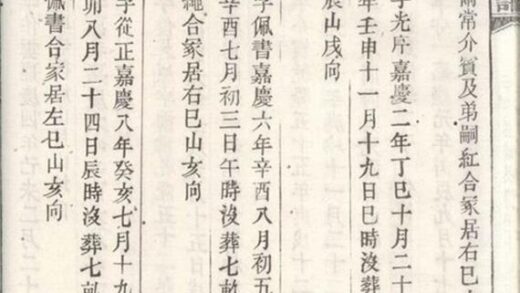 常介質及弟嗣紅合冢居右巳
字光序嘉慶二年丁巳十月二十
年壬申十一月十九日巳時沒葬
辰山戌向
字佩書嘉慶六年辛酉八月初五
辛酉七月初三日午時沒葬七畝
繩合冢居右巳山亥向
字從正嘉慶八年癸亥七月十九
卯八月二十四日辰時沒葬七畝
佩書合冢居左巳山亥向